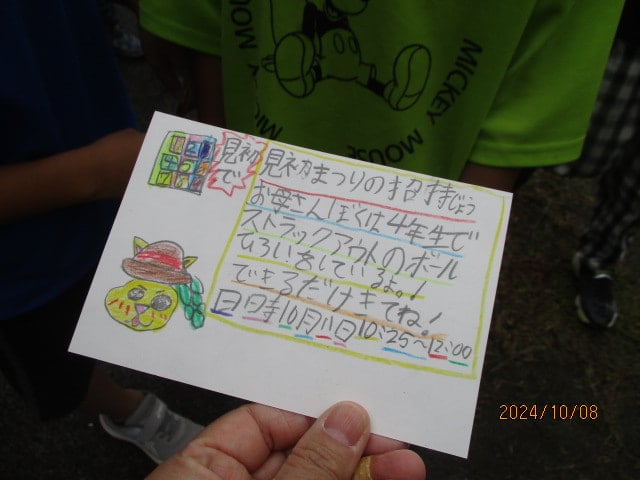 見初
で
見初まつりの招待じょう
お母さんぼくは4年生で
ストラックアウトのボール
ひろいをしているよ。!
できるだけきてね!
日日時10月11日10:25~12:00
MICKEY MOUSE
2024/10/08